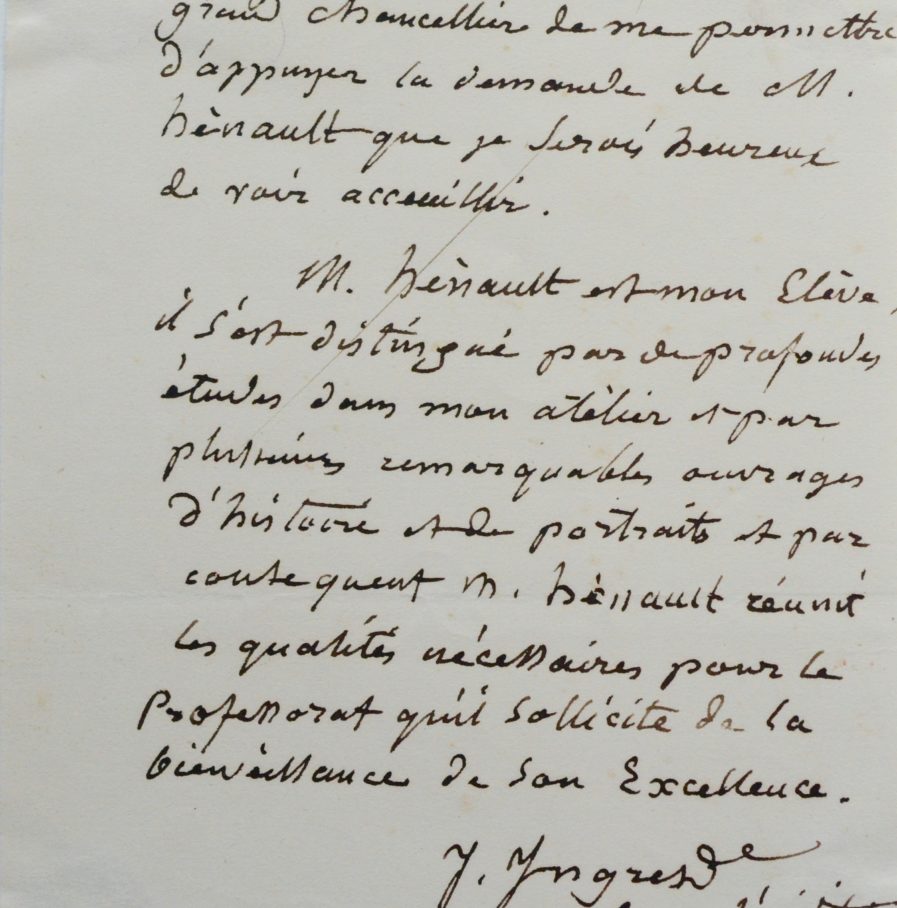 grand chancellier de me permettre
d'appuyer la demande de M.
hènault que je serois heureux
de voir acceuillir.
M. hènault est mon Elève,
il s'est distingué par de profondes
études dans mon atèlier et par
plusieurs remarquables ouvrages
d'histoire et de portraits et par
consequent M. hènault réunit
les qualités nécessaires pour le
Professorat qu'il sollicite de la
bienvèillance de Son Excellence.
J. Ingres